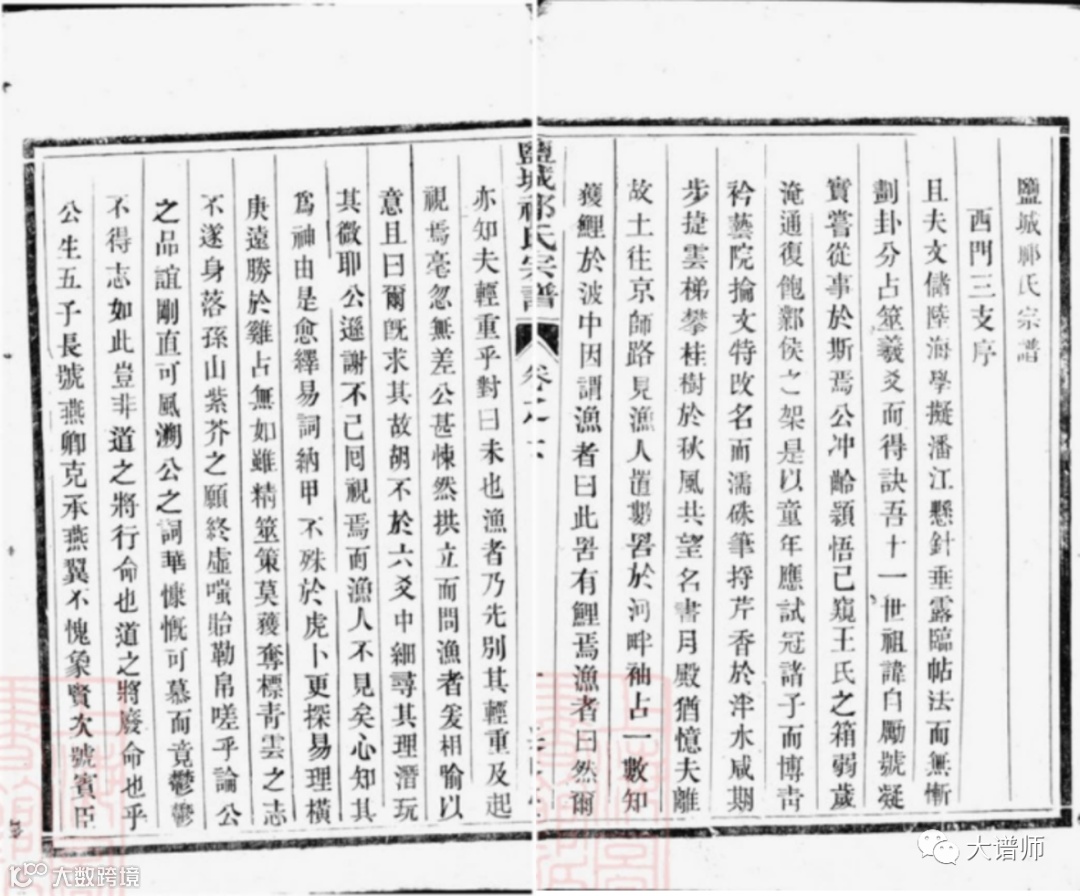 鹽城祁氏宗譜
西門三支序
且夫文儲陸海學擬潘江懸針垂露臨帖法而無慚
劃卦分占筮羲爻而得訣吾十一世祖諱自勵號凝
實嘗從事於斯焉公冲齡穎悟已窺王氏之箱弱歲
淹通復飽鄴侯之架是以童年應試冠諸子而博青
衿藝院掄文特改名而濡硃筆捋芹香於泮水咸期
步捷雲梯攀桂樹於秋風共望名書月殿猶憶夫離
故土往京師路見漁人置數罟於河畔袖占一數知
獲鯉於波中因謂漁者曰此罟有鯉焉漁者曰然爾
鹽城祁氏宗譜 卷之
亦知夫輕重乎對曰未也漁者乃先別其輕重及起
視焉毫忽無差公甚悚然拱立而問漁者爰相喻以
意且曰爾旣求其故胡不於六爻中細尋其理潛玩
其微耶公遜謝不已囘視焉而漁人不見矣心知其
爲神由是愈繹易詞納甲不殊於虎卜更探易理橫
庚遠勝於雞占無如雖精筮策莫獲奪標青雲之志
不遂身落孫山紫芥之願終虛嗤貽勒帛嗟乎論公
之品誼剛直可風溯公之詞華慷慨可慕而竟鬱鬱
不得志如此豈非道之將行命也道之將廢命也乎
公生五子長號燕卿克承燕翼不愧象賢次號賓臣
大谱师
大数跨境